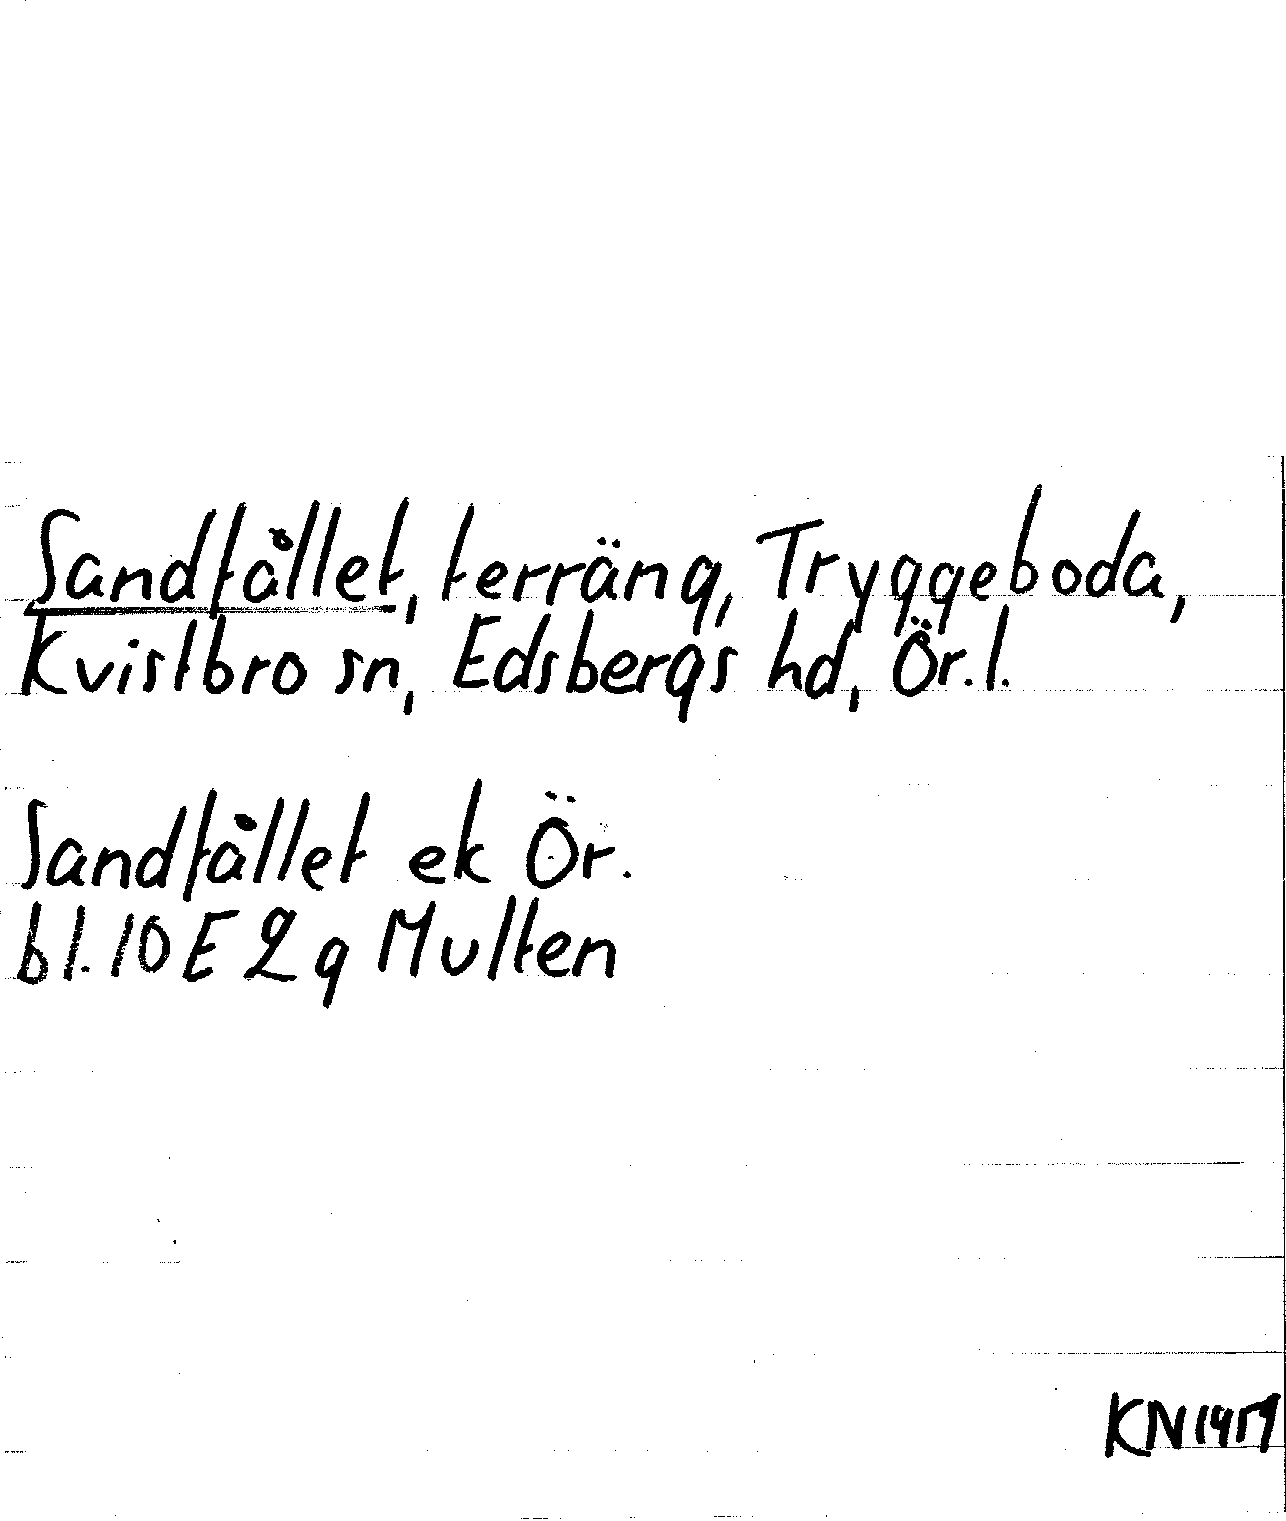 Sandfållet, terräng, Tryggeboda,
Kvistbro sn, Edsbergs hd, Ör.l.
Sandfållet ek Ör.
bl. 10 E 2 g Multen